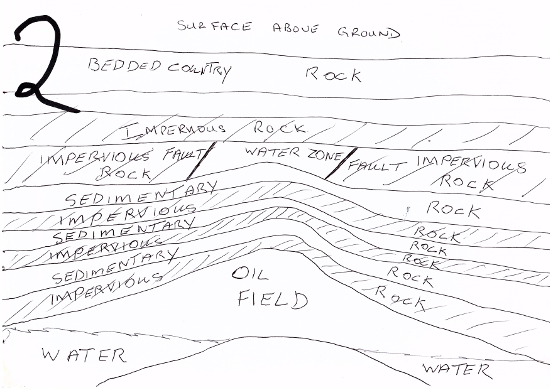 2
SURFACE ABOVE GROUND
BEDDED COUNTRY ROCK
IMPERVIOUS ROCK
IMPERVIOUS FAULT WATER ZONE FAULT IMPERVIOUS
ROCK ROCK
SEDIMENTARY ROCK
IMPERVIOUS ROCK
SEDIMENTARY ROCK
IMPERVIOUS ROCK
SEDIMENTARY ROCK
IMPERVIOUS ROCK
OIL
FIELD
WATER WATER